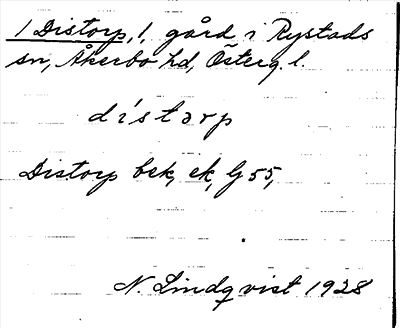 1 Distorp, 1, gård i Rystads
sn, Åkerbo hd, Österg. l.
dístɔrp
Distorp bek, ek, G 55,
N. Lindqvist 1928